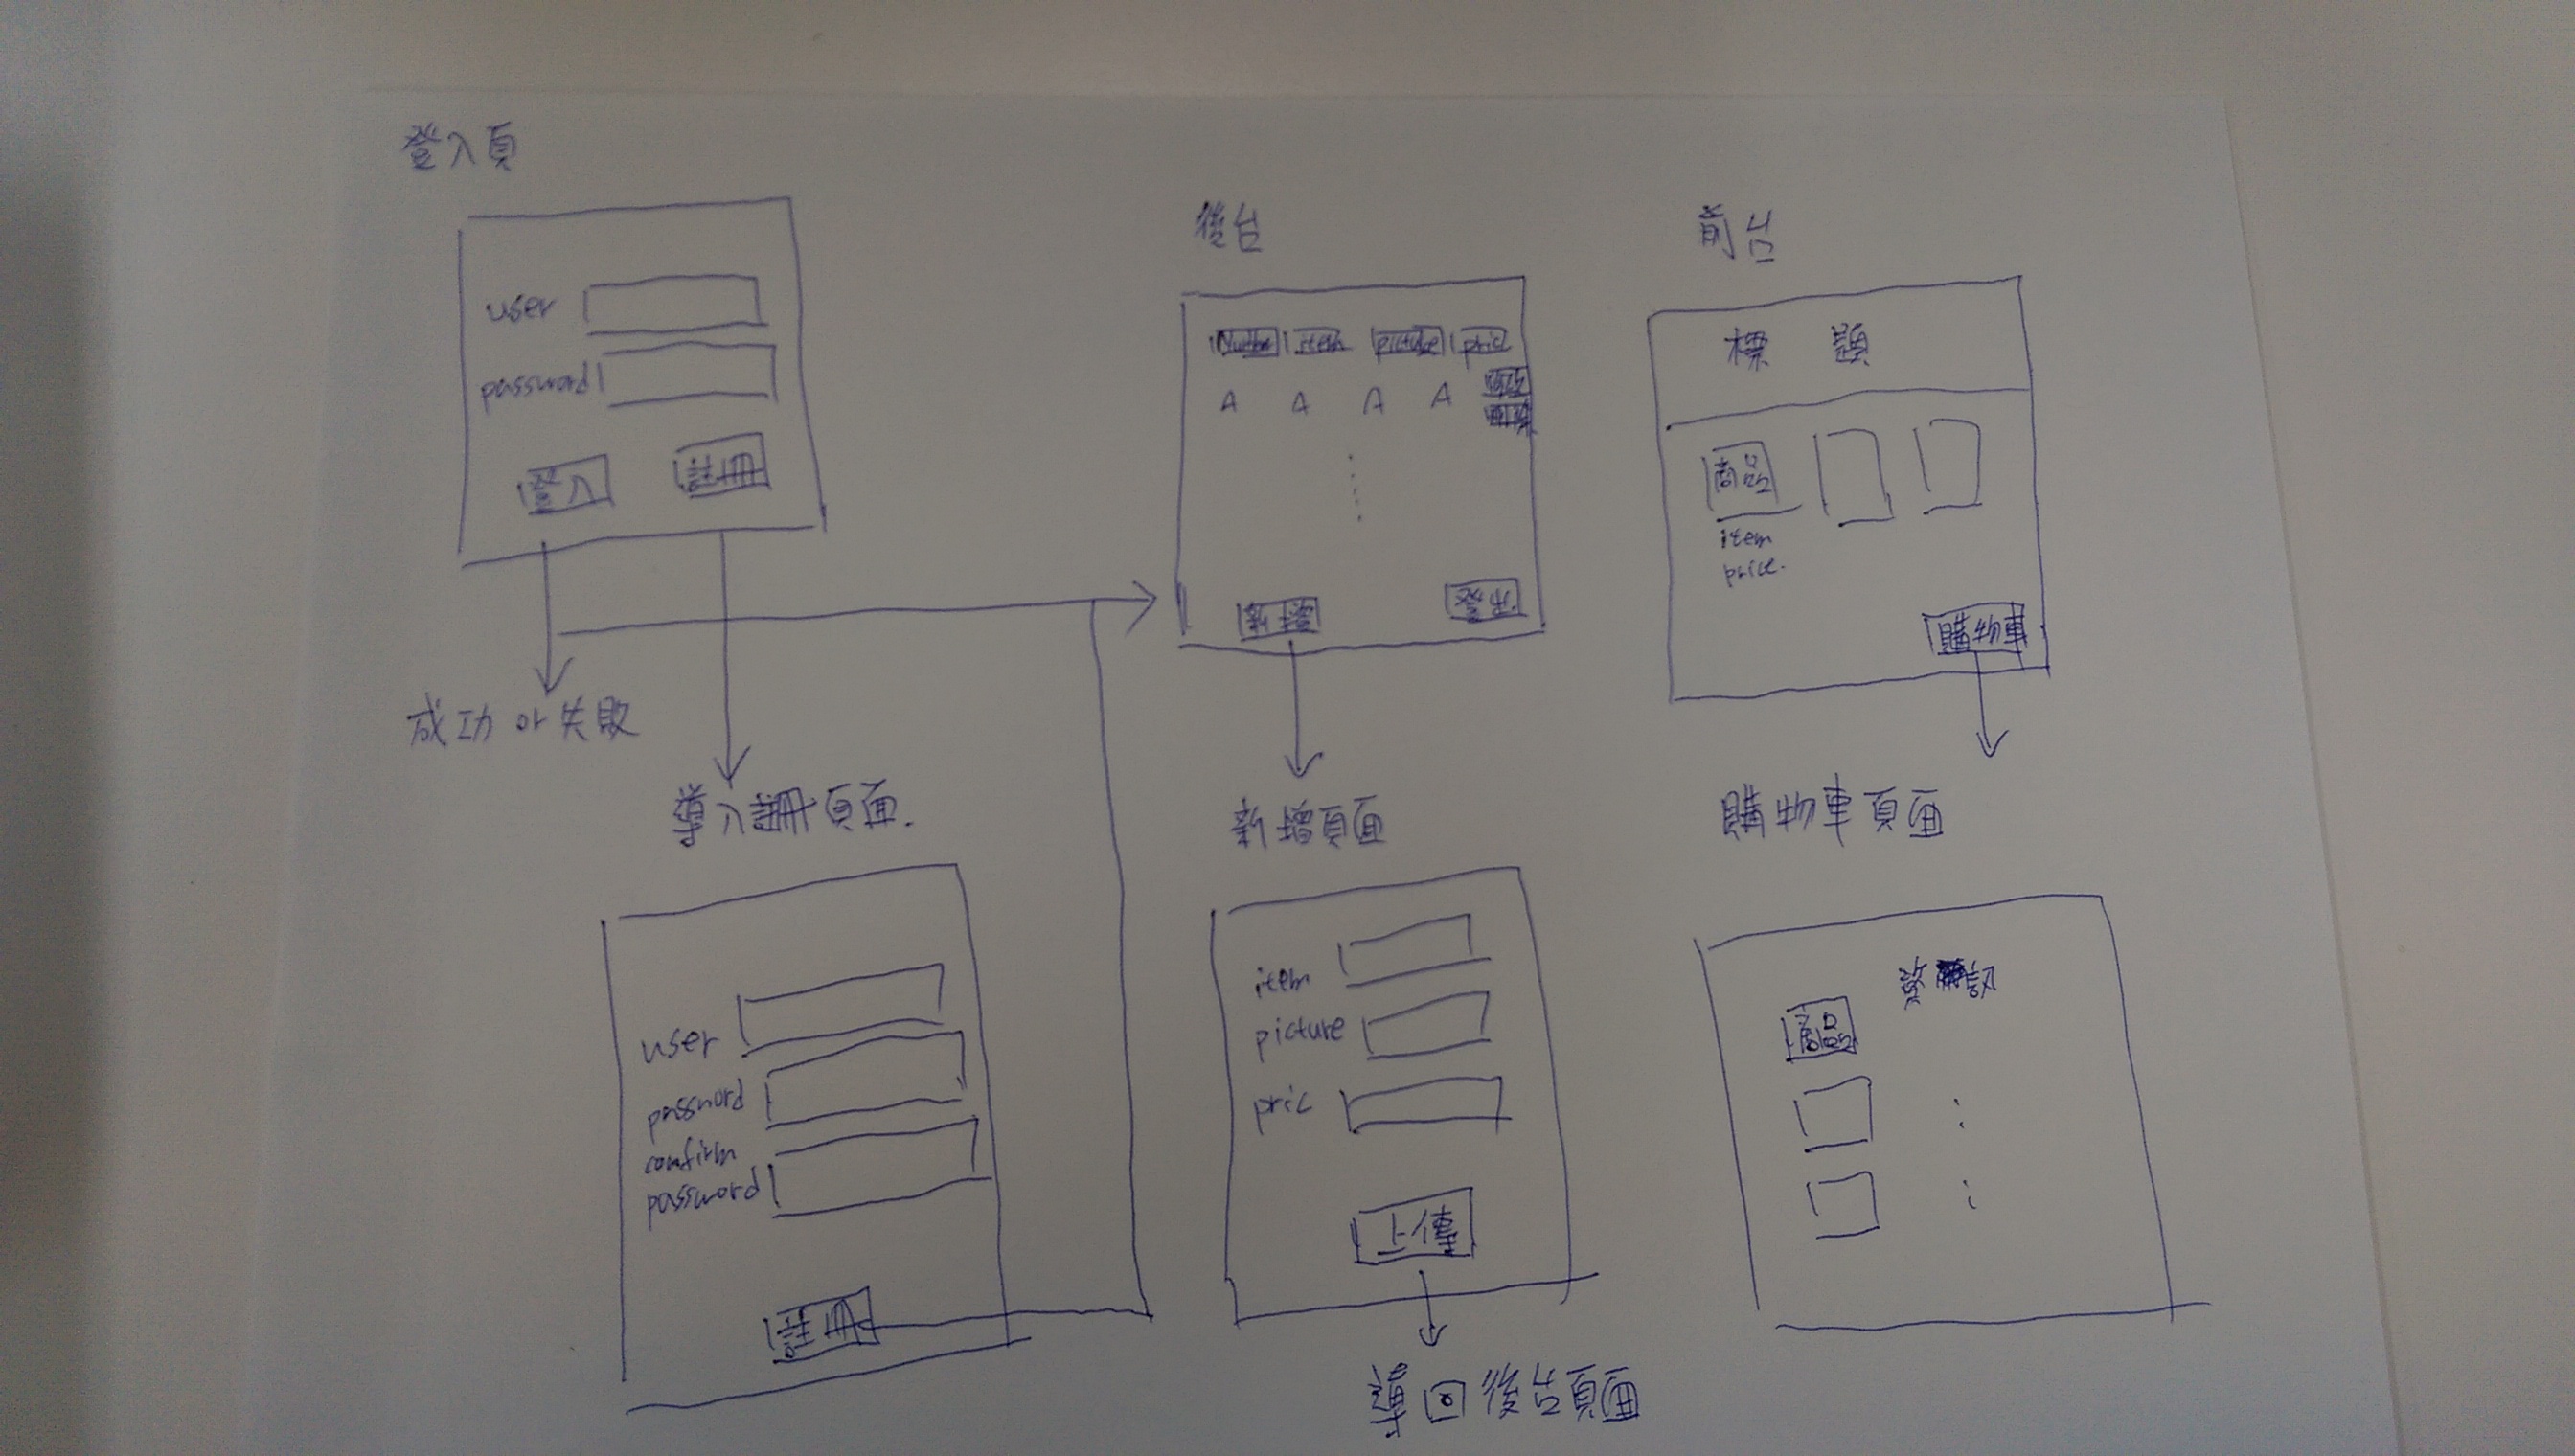 登入頁
user
password
登入 註冊
成功 or 失敗
導入註冊頁面.
user
password
comfirm
password
註冊
後台
item picture pric
A A A A 修改
刪除
新增 登出
新增頁面
item
picture
pric
上傳
導回後台頁面
前台
標題
商品
item
price.
購物車
購物車頁面
商品